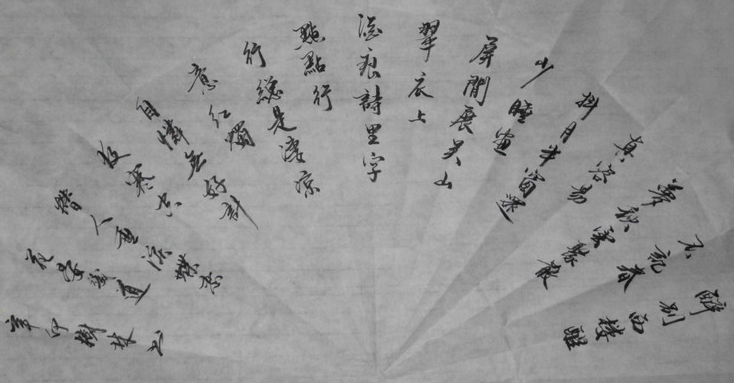 醉別西樓醒
不記春
夢秋雲聚散
真容易
斜月半窗還
少睡畫
屏閒展吳山
翠衣上
酒痕詩里字
點點行
行總是淒涼
意紅燭
自憐無好計
夜寒空
替人垂淚蝶恋
花晏幾道
辛卯樹林书